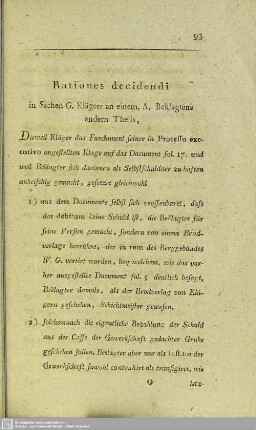 93
Rationes decidendi
in Sachen G. Klägers an einem, A. Beklagtens
andern Theils,
Dieweil Kläger das Fundament seiner in Processu exe-
cutivo angestellten Klage auf das Document fol. 17. und
weil Beklagter sich darinnen als Selbstschuldner zu haften
anheischig gemacht, gesetzet gleichwohl
1) aus dem Documente selbst sich veroffenbaret, daß
das debitum keine Schuld ist, die Beklagter für
seine Person gemacht, sondern von einem Brod-
verlage herrühre, der in rem des Berggebäudes
W. G. vertirt worden, bey welchem, wie das vor-
her ausgestellte Document fol. 5 deutlich besagt,
Beklagter damals, als der Brodverlag von Klä-
gern geschehen, Schichtmeister gewesen,
2) solchemnach die eigentliche Bezahlung der Schuld
aus der Casse der Gewerkschaft gedachter Grube
geschehen sollen, Beklagter aber nur als Institor der
Gewerkschaft sowohl contrahirt als transigiret, wie
G
letz-